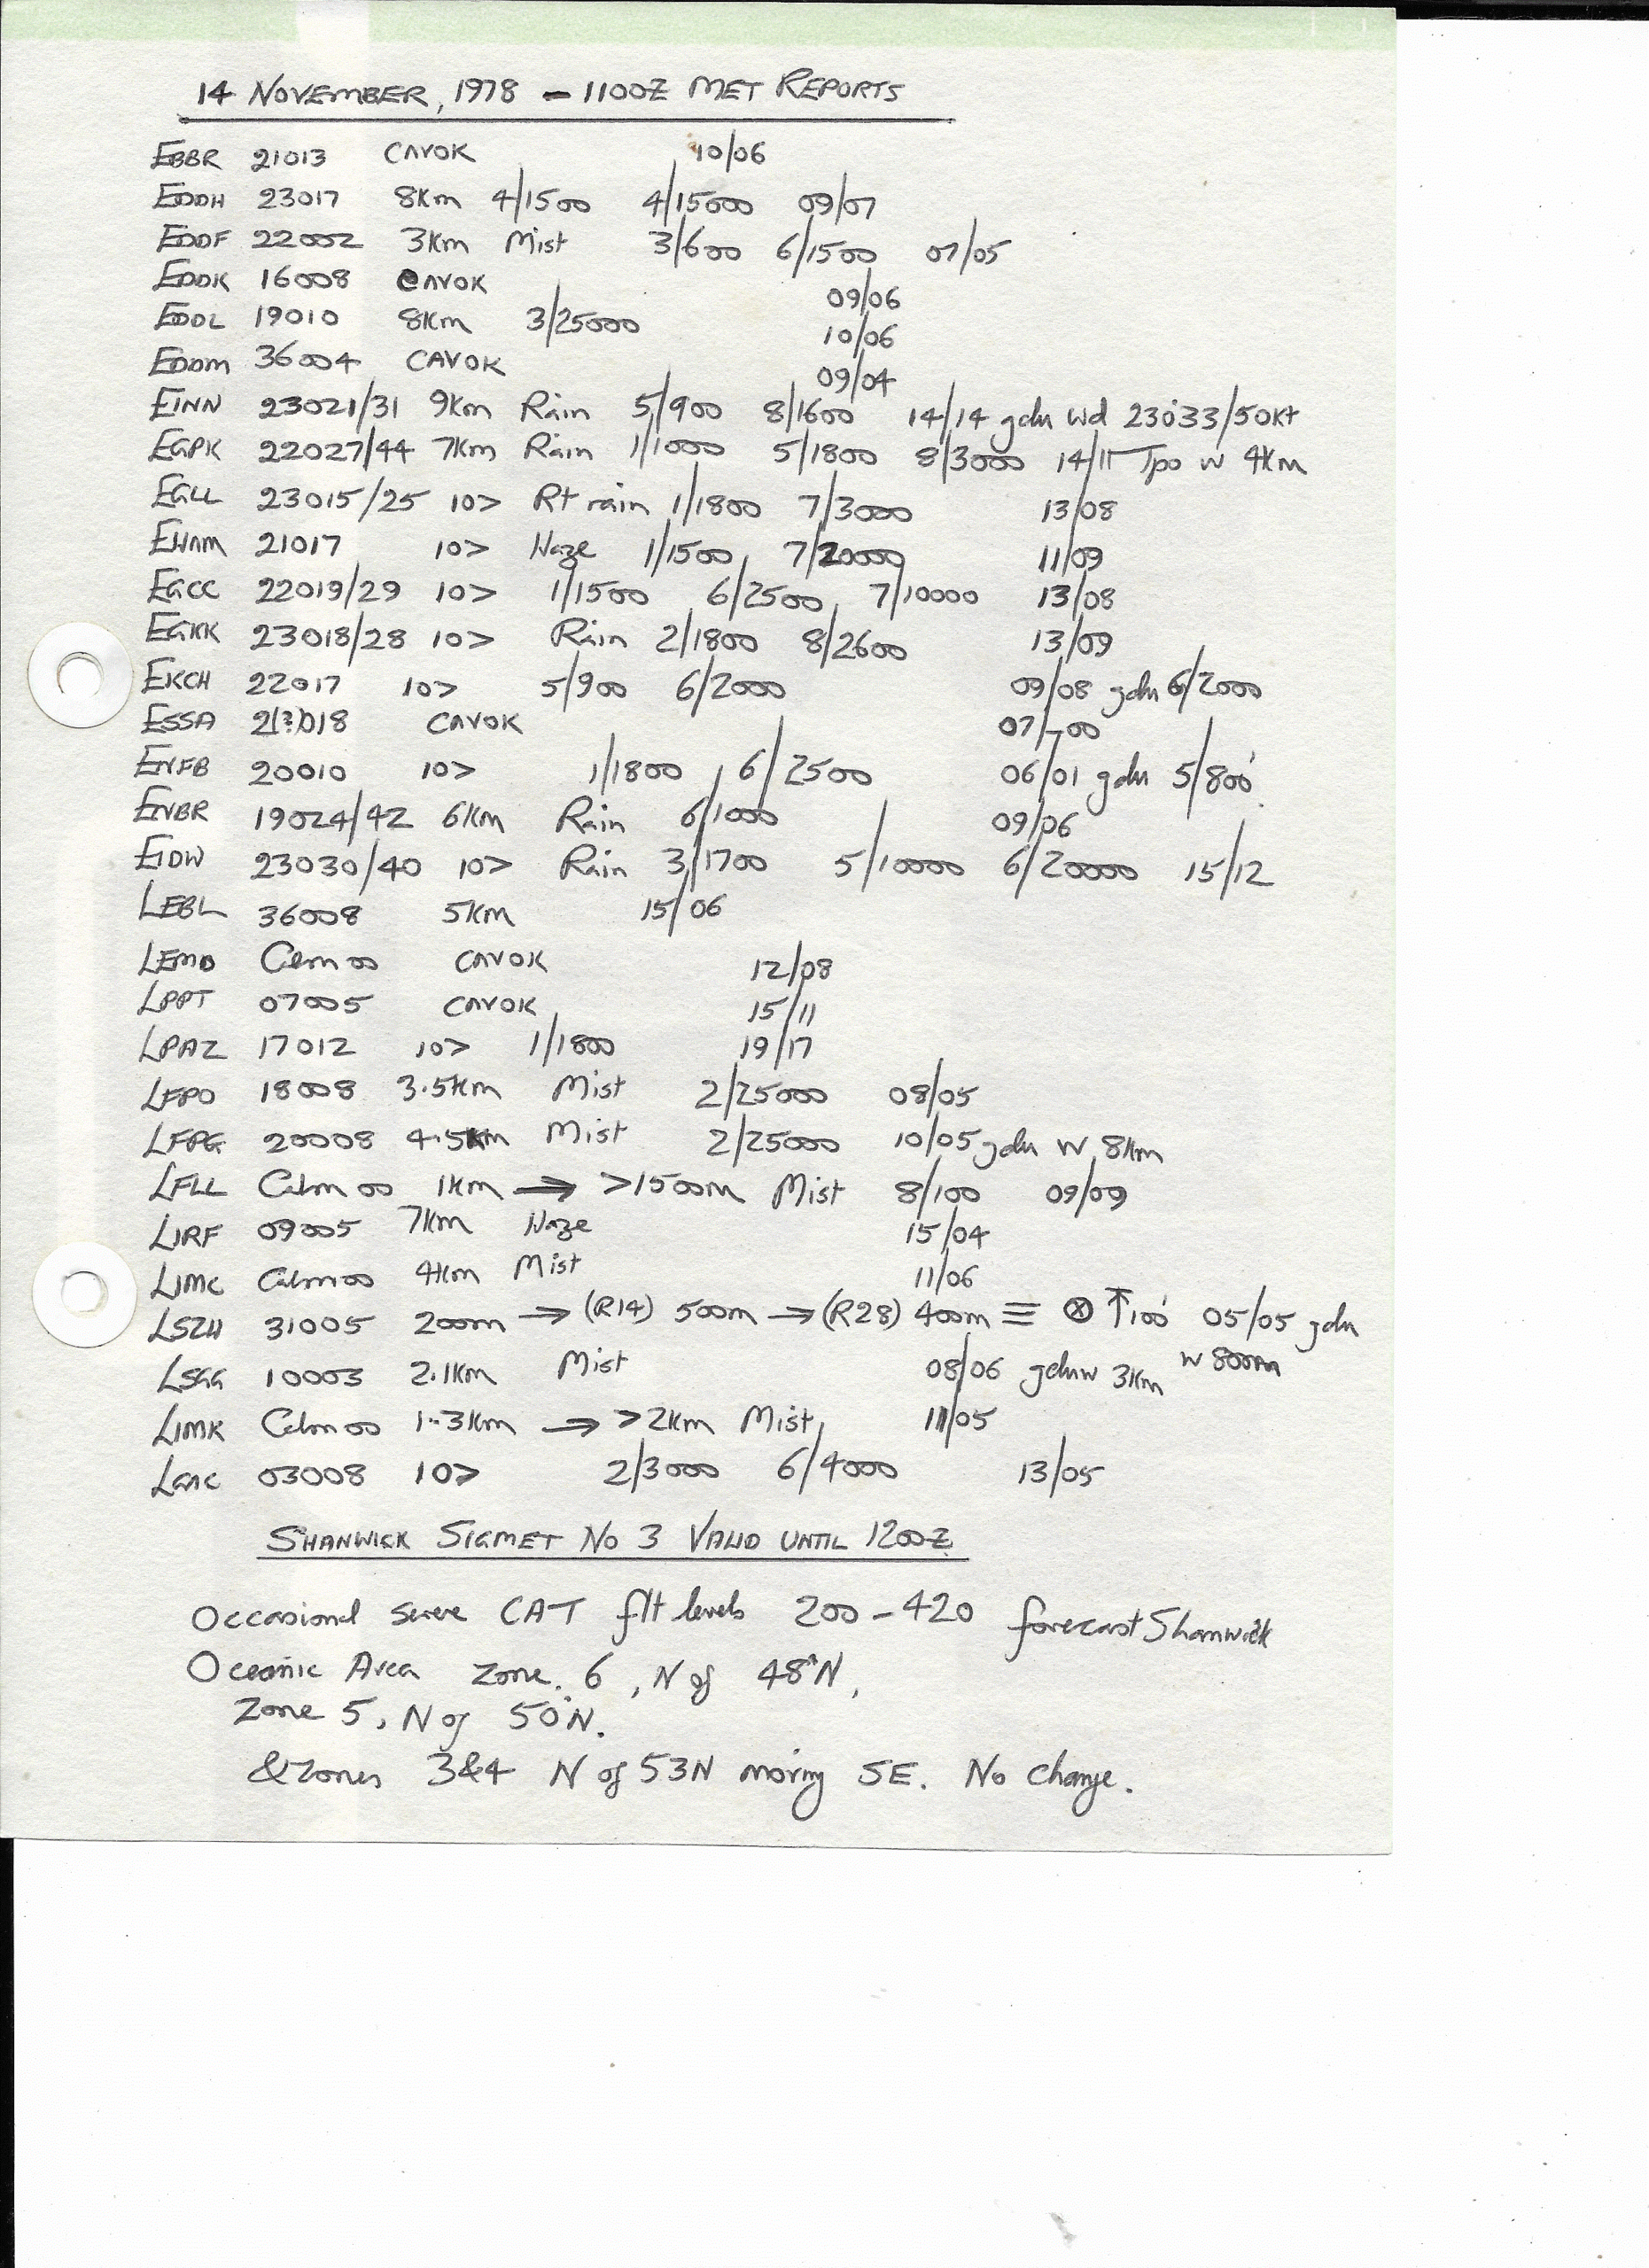 14 NOVEMBER, 1978 - 1100Z MET REPORTS
EBBR 21013 CAVOK 10/06
EDDH 23017 8Km 4/1500 4/15000 09/07
EDDF 22002 3Km Mist 3/600 6/1500 07/05
EDDK 16008 CAVOK 09/06
EDDL 19010 8Km 3/25000 10/06
EDDM 36004 CAVOK 09/04
EINN 23021/31 9Km Rain 5/900 8/1600 14/14 gdu wd 23033/50Kt
EGPK 22027/44 7Km Rain 1/1000 5/1800 8/3000 14/11 Tpo w 4Km
EGLL 23015/25 10> Rt rain 1/1800 7/3000 13/08
EHAM 21017 10> Haze 1/1500 7/20000 11/09
EGCC 22019/29 10> 1/1500 6/2500 7/10000 13/08
EGKK 23018/28 10> Rain 2/1800 8/2600 13/09
EKCH 22017 10> 5/900 6/2000 09/08 gdu 6/2000
ESSA 2(?)018 CAVOK 07/-00
ENFB 20010 10> 1/1800 6/2500 06/01 gdu 5/800'
ENBR 19024/42 6Km Rain 6/1000 09/06
EIDW 23030/40 10> Rain 3/1700 5/10000 6/20000 15/12
LEBL 36008 5Km 15/06
LEMD Calm 00 CAVOK 12/08
LPPT 07005 CAVOK 15/11
LPAZ 17012 10> 1/1800 19/17
LFPO 18008 3.5Km Mist 2/25000 08/05
LFPG 20008 4.5Km Mist 2/25000 10/05 gdu W 8Km
LFLL Calm 00 1Km → >1500m Mist 8/100 09/09
LIRF 09005 7Km Haze 15/04
LIMC Calm 00 4Km Mist 11/06
LSZH 31005 200m → (R14) 500m → (R28) 400m ≡ ⊗ ↑100' 05/05 gdu
W 800m
LSGG 10003 2.1Km Mist 08/06 gduw 3Km
LIMK Calm 00 1.3Km → >2Km Mist 11/05
03008 10> 2/3000 6/4000 13/05
SHANWICK SIGMET NO 3 VALID UNTIL 1200Z
Occasional severe CAT flt levels 200-420 forecast Shanwick
Oceanic Area Zone. 6, N of 48°N,
Zone 5, N of 50°N.
& Zones 3&4 N of 53N moving SE. No change.